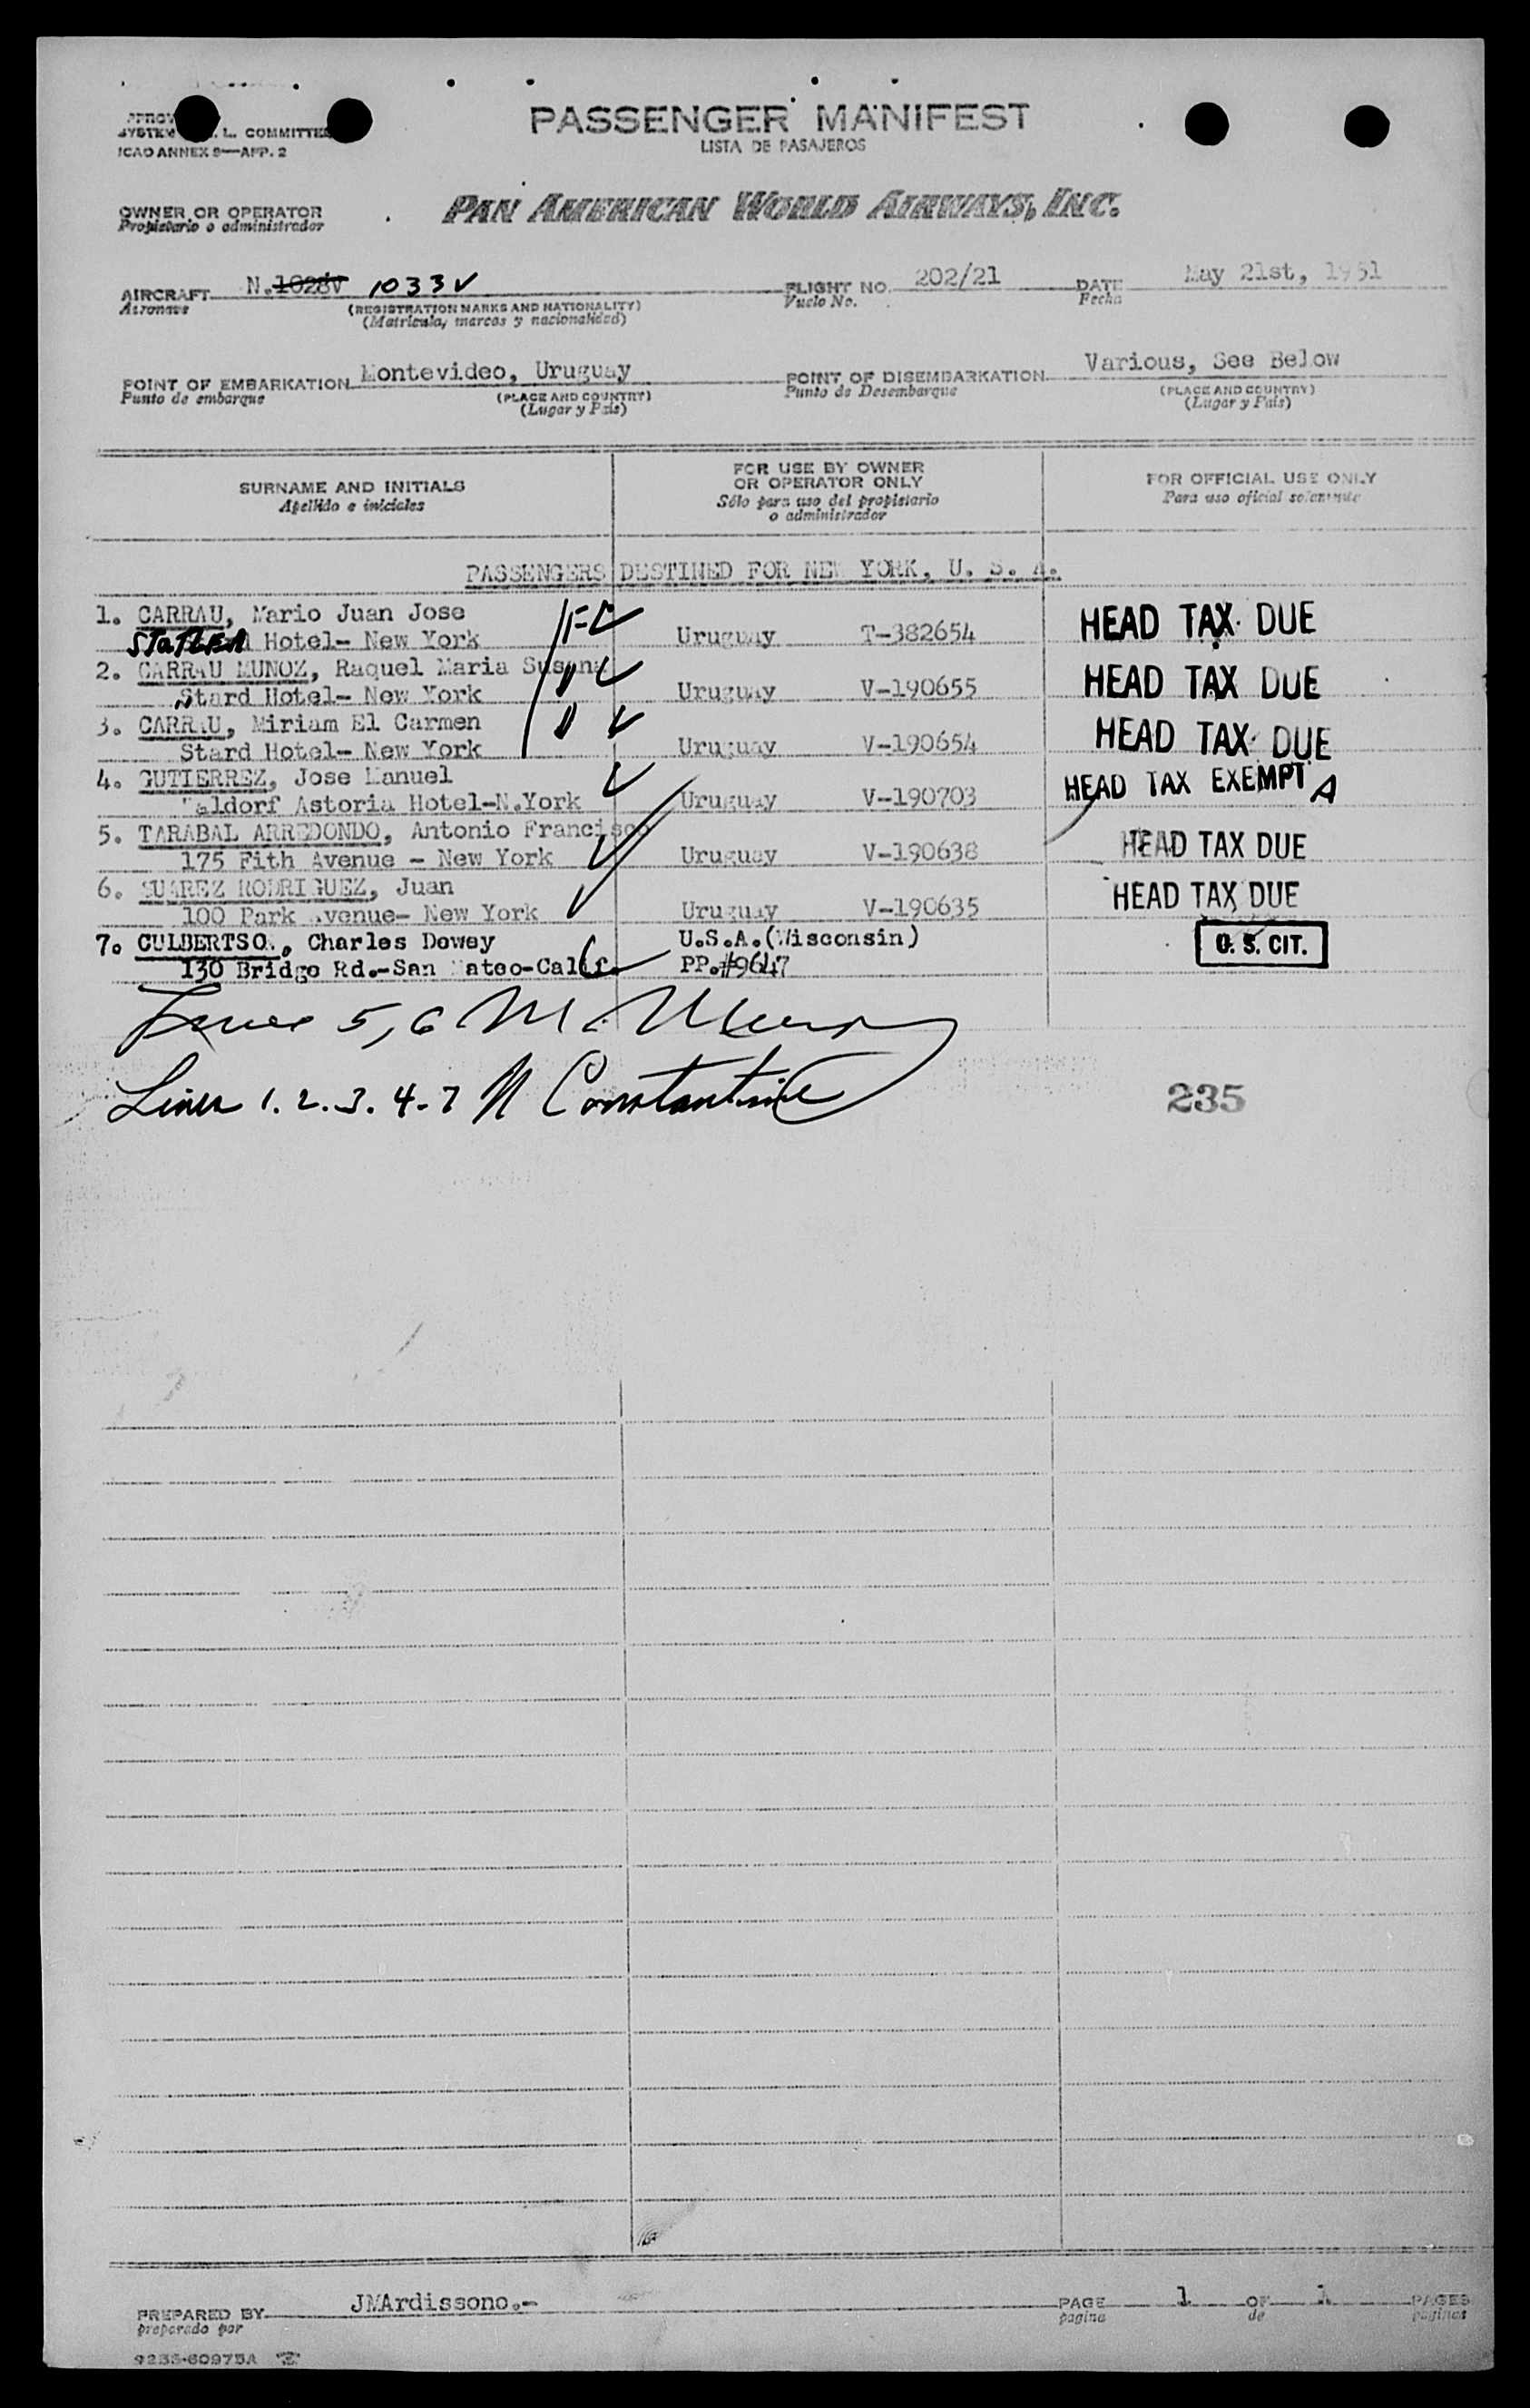 PASSENGER MANIFEST
LISTA DE PASAJEROS
L. COMMITTEE
ICAO ANNEX 9—APP. 2
OWNER OR OPERATOR
Propietario o administrador
PAN AMERICAN WORLD AIRWAYS, INC.
AIRCRAFT N.1028V 1033V FLIGHT NO. 202/21 DATE May 21st, 1951
Aeronave (REGISTRATION MARKS AND NATIONALITY) Vuelo No. Fecha
(Matricula, marcas y nacionalidad)
POINT OF EMBARKATION Montevideo, Uruguay POINT OF DISEMBARKATION Various, See Below
Punto de embarque (PLACE AND COUNTRY) Punto de Desembarque (PLACE AND COUNTRY)
(Lugar y País) (Lugar y País)
SURNAME AND INITIALS FOR USE BY OWNER OR OPERATOR ONLY FOR OFFICIAL USE ONLY
Apellido e iniciales Sólo para uso del propietario o administrador Para uso oficial solamente
PASSENGERS DESTINED FOR NEW YORK, U. S. A.
1. CARRAU, Mario Juan Jose
STATLER Hotel- New York Uruguay T-382654 HEAD TAX DUE
2. CARRAU MUNOZ, Raquel Maria Susana
Stard Hotel- New York Uruguay V-190655 HEAD TAX DUE
3. CARRAU, Miriam El Carmen
Stard Hotel- New York Uruguay V-190654 HEAD TAX DUE
4. GUTIERREZ, Jose Manuel
Waldorf Astoria Hotel-N.York Uruguay V-190703 HEAD TAX EXEMPT A
5. TARABAL ARREDONDO, Antonio Francisco
175 Fith Avenue - New York Uruguay V-190638 HEAD TAX DUE
6. SUAREZ RODRIGUEZ, Juan
100 Park Avenue- New York Uruguay V-190635 HEAD TAX DUE
7. CULBERTSON, Charles Dewey U.S.A.(Wisconsin) U. S. CIT.
130 Bridge Rd.-San Mateo-Calif. PP.#9647
Lines 5,6 M.
Lines 1. 2. 3. 4. 7 N Constantine
235
PREPARED BY JMArdissono.- PAGE 1 OF 1 PAGES
preparado por pagina de paginas
9235-60975A